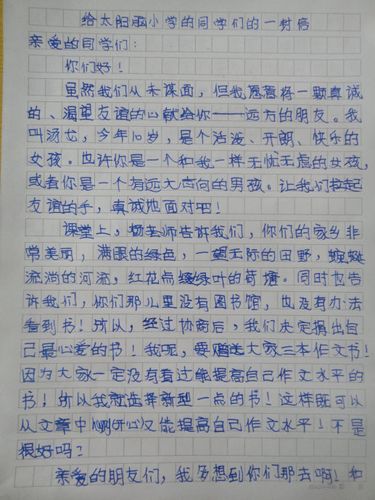 给太阳岛小学的同学们的一封信
亲爱的同学们：
你们好！
虽然我们从未谋面，但我愿意将一颗真诚
的、渴望友谊的心献给你——远方的朋友。我
叫汤，今年10岁，是个活泼、开朗、快乐的
女孩。也许你是一个和我一样无忧无虑的女孩，
或者你是一个有远大志向的男孩。让我们拉起
友谊的手，真诚地面对吧！
课堂上，杨老师告诉我们，你们的家乡非
常美丽，满眼的绿色，一望无际的田野，蜿蜒
流淌的河流，红花点缀绿叶的荷塘。同时也告
诉我们，你们那儿里没有图书馆，也没有办法
看到书！所以，经过协商后，我们决定捐出自
己最心爱的书！我呢，要赠送大家三本作文书！
因为大家一定没有看过能提高自己作文水平的
书！所以我就选择新型一点的书！这样既可以
从文章中心又能提高自己作文水平！不是
很好吗？
亲爱的朋友们，我多想到你们那去啊！和